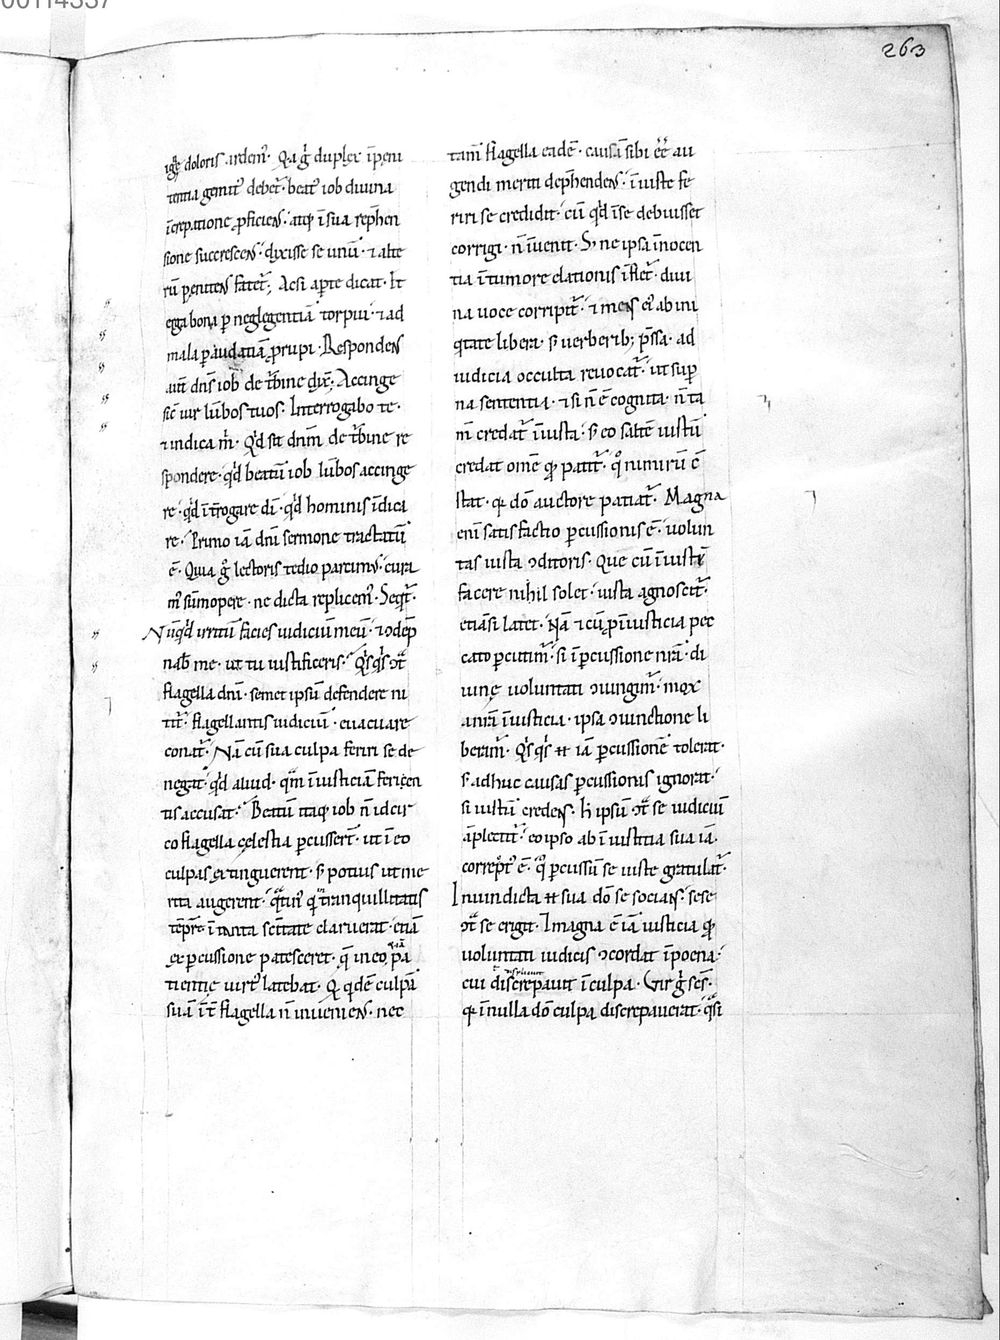 263
igne doloris ardem̄. Q̄a ḡ duplex īpeni
tentia gemit᷒ debet᷒. beat᷒ iob diuina
īcrepatione ꝓficiens. atq; ī sua rep̄hen
sione succrescens. dixisse se unū. ⁊ alte
rū penitens fatet᷒; Acsi apte dicat. Et
erga bona ꝑ neglegentiā torpui. ⁊ ad
mala ꝑ audatiā ꝓrupi. Respondens
aut̄ dn̄s iob de t̄bine dix̄; Accinge
sic̄ uir lūbos tuos. Interrogabo te.
⁊ indica m̄. Q'd sit dn̄m de t̄bine re
spondere. q'd beatū iob lūbos accinge
re. q'd īt̄rogare dī. q'd hominis īdica
re. Primo iā dn̄i sermone tractatū
ē. Quia ḡ lectoris tedio parcim᷒. cura
m᷒ sūmopere. ne dicta replicem᷒. Seqt̄.
Nūq'd irritū facies iudiciū meū. ⁊ ꝯdēp
nab̄ me. ut tu iustificeris. Q'sq's ꝯt̄
flagella dn̄i. semet ipsū defendere ni
tit᷒. flagellantis iudiciū. euacuare
conat᷒. Nā cū sua culpa feriri se de
negat. q'd aliud. qm̄ īiusticiā ferien
tis accusat. Beatū itaq; iob n̄ idcir
co flagella celestia ꝑcusser̄t. ut ī eo
culpas extinguerent. s; potius ut me
rita augerent. q̄tin᷒ q' tranquillitatis
tēpre ī tanta sc̄itate claruerat. etiā
ex ꝑcussione patesceret. q̄ in eo pa
tientie uirt᷒ latebat. Q qdē culpā
suā īt̄ flagella n̄ inueniens. nec
tam̄ flagella eadē. causā sibi ēē au
gendi meriti dep̄hendens. īiuste fe
riri se credidit. cū q'd ī se debuisset
corrigi. n̄ īuenit. S; ne ipsa īnocen
tia ī tumore elationis īflet᷒. diui
na uoce corripit᷒. ⁊ mens ei᷒ ab ini
q'tate libera. s; uerberib; p̄ssa. ad
iudicia occulta reuocat᷒. ut sup
na sententia. ⁊ si n̄ ē cognita. n̄ ta
m̄ credat᷒ īiusta. s; eo saltē iustū
credat om̄e q; patit᷒. q' nimirū c̄
stat. q; dō auctore patiat᷒. Magna
enī satisfactio ꝑcussionis ē. uolun
tas iusta ꝯditoris. Que cū īiustū
facere nihil solet. iusta agnoscit᷒.
etiāsi latet. Nā ⁊ cū ꝓ īiusticia pec
cato ꝑcutim᷒. si ī ꝑcussione nr̄a. di
uine uoluntati ꝯiungim᷒. mox
anr̄a īiusticia. ipsa ꝯiunctione li
beram᷒. Q'sq's ⁊ iā ꝑcussionē tolerat.
s; adhuc causas ꝑcussionis ignorat.
si iustū credens. h ipsū ꝯt̄ se iudiciū
āplectit᷒. eo ipso ab īiustitia sua iā.
corrept᷒ ē. q' ꝑcussū se iuste gratulat᷒.
In uindicta ⁊ sua dō se socians. sese
ꝯt̄ se erigit. I magna ē iā iusticia q;
uoluntati iudicis ꝯcordat ī poena.
cui displicuit discrepauit ī culpa. Vir ḡ sc̄s.
q; ī nulla dō culpa discrepauerat. q'si